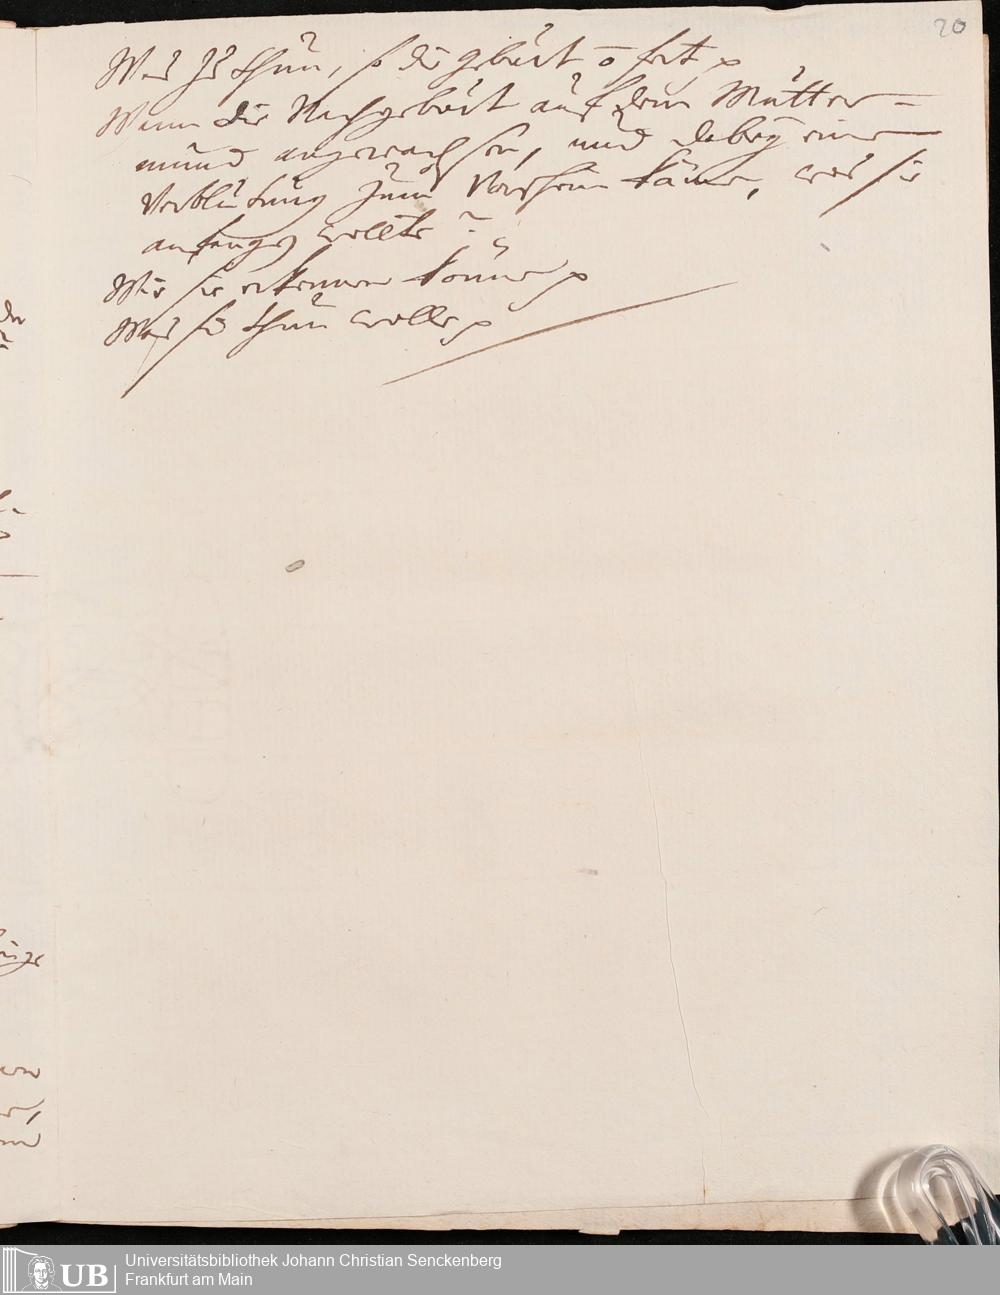 20
Was zu thun, so die geburt o fort p
Wann die Nachgeburt auf dem Mutter-
mund angewachsen, und dabey eine
Verblutung zum Vorschein käme, was sie
anfangen wollte?
Wie sie erkennen könne p
Was sie thun wolle p
UB
Universitätsbibliothek Johann Christian Senckenberg
Frankfurt am Main